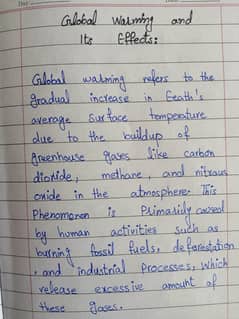 Global Warming and
Its Effects:
Global warming refers to the
gradual increase in Earth's
average surface temperature
due to the buildup of
greenhouse gases like carbon
dioxide, methane, and nitrous
oxide in the atmosphere. This
Phenomenon is Primarily caused
by human activities such as
burning fossil fuels, deforestation
, and industrial Processes, which
release excessive amount of
these gases.